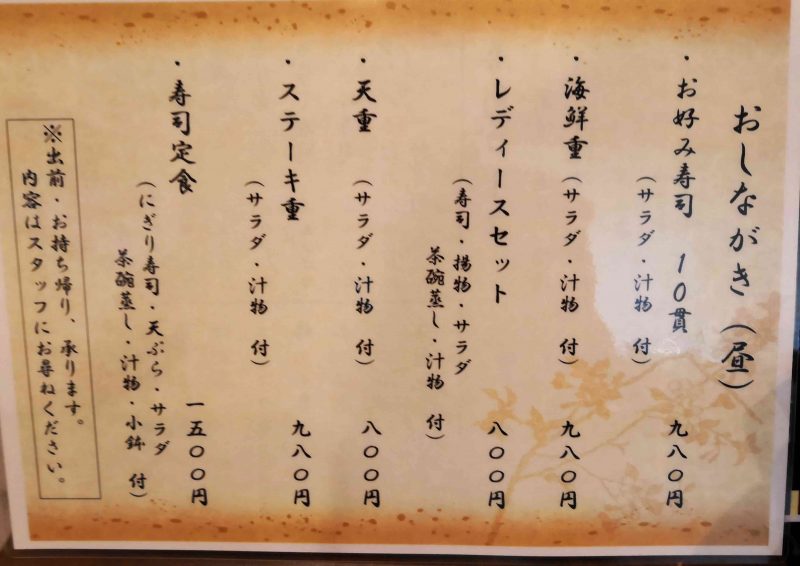 おしながき(昼)
・お好み寿司 10貫 九八〇円
(サラダ・汁物 付)
・海鮮重(サラダ・汁物 付) 九八〇円
・レディースセット 八〇〇円
(寿司・揚物・サラダ
茶碗蒸し・汁物 付)
・天重(サラダ・汁物 付) 八〇〇円
・ステーキ重 九八〇円
(サラダ・汁物 付)
・寿司定食 一五〇〇円
(にぎり寿司・天ぷら・サラダ
茶碗蒸し・汁物・小鉢 付)
※出前・お持ち帰り、承ります。
内容はスタッフにお尋ねください。